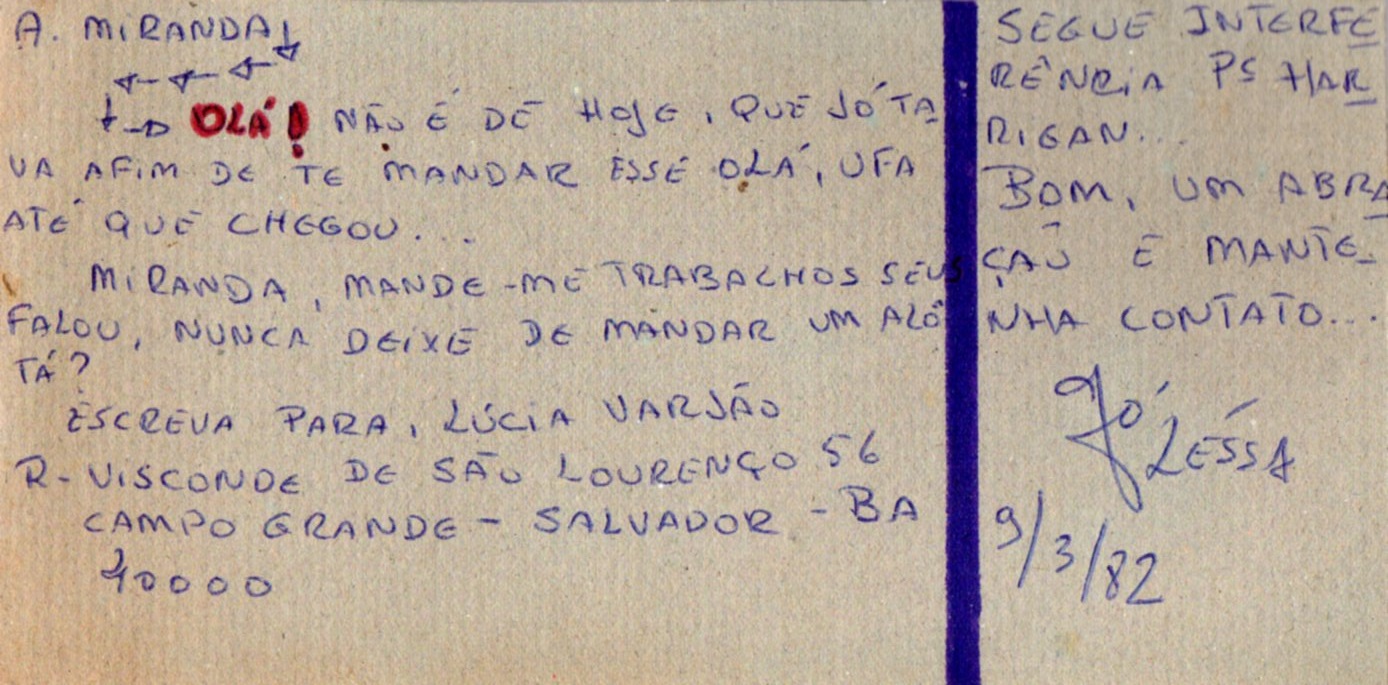 A. MIRANDA
OLÁ! NÃO É DE HOJE, QUE JÓ TA
VA AFIM DE TE MANDAR ESSE OLÁ, UFA
ATÉ QUE CHEGOU...
MIRANDA, MANDE-ME TRABALHOS SEUS
FALOU, NUNCA DEIXE DE MANDAR UM ALÔ
TÁ?
ESCREVA PARA, LÚCIA VARJÃO
R- VISCONDE DE SÃO LOURENÇO 56
CAMPO GRANDE - SALVADOR - BA
40000
SEGUE INTERFE
RÊNCIA PS HAR
RIGAN...
BOM, UM ABRA
ÇÃO E MANTE-
NHA CONTATO...
JÓ LESSA
9/3/82